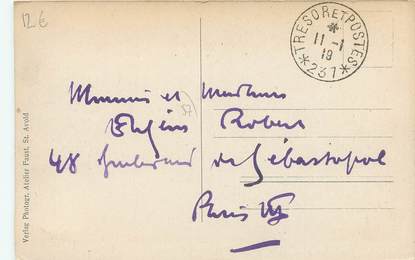 12€
TRESOR ET POSTES
*
11-1
19
* 237 *
Monsieur et Madame
57
Robert
48 Boulevard de Sébastopol
Paris
Verlag Photogr. Atelier Faust, St. Avold